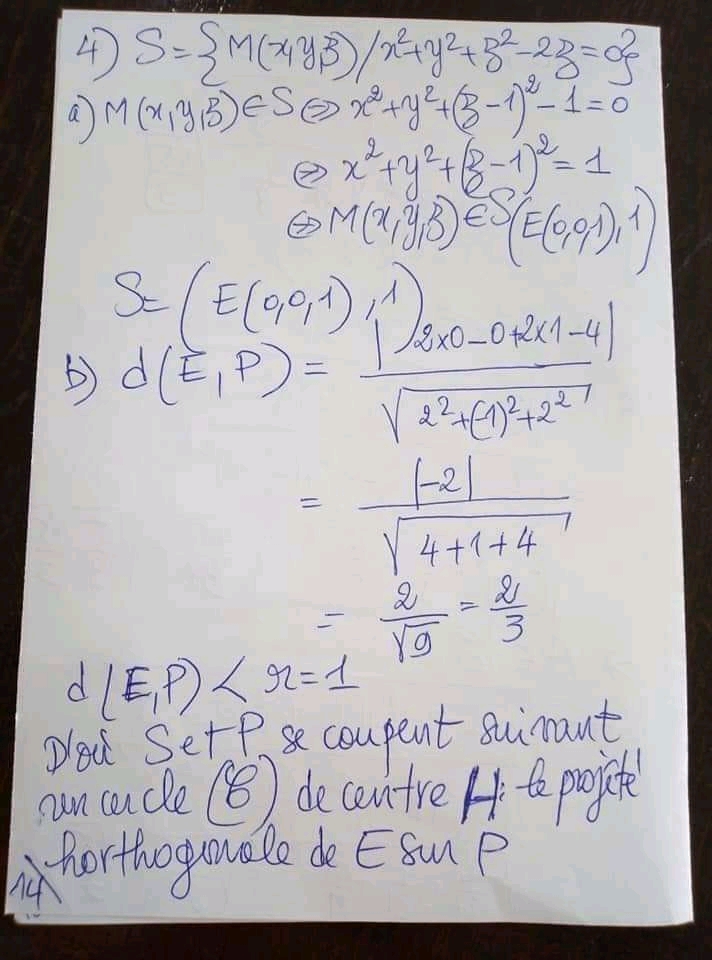 4) S = {M(x,y,z) / x² + y² + z² - 2z = 0}
a) M(x,y,z) ∈ S ⇔ x² + y² + (z-1)² - 1 = 0
⇔ x² + y² + (z-1)² = 1
⇔ M(x,y,z) ∈ S(E(0,0,1),1)
S = (E(0,0,1),1)
b) d(E,P) = |2×0-0+2×1-4| / √(2²+(-1)²+2²)
= |-2| / √(4+1+4)
= 2/√9 = 2/3
d(E,P) < r = 1
D'où S et P se coupent suivant
un cercle (C) de centre H: le projeté
horthogonale de E sur P
14